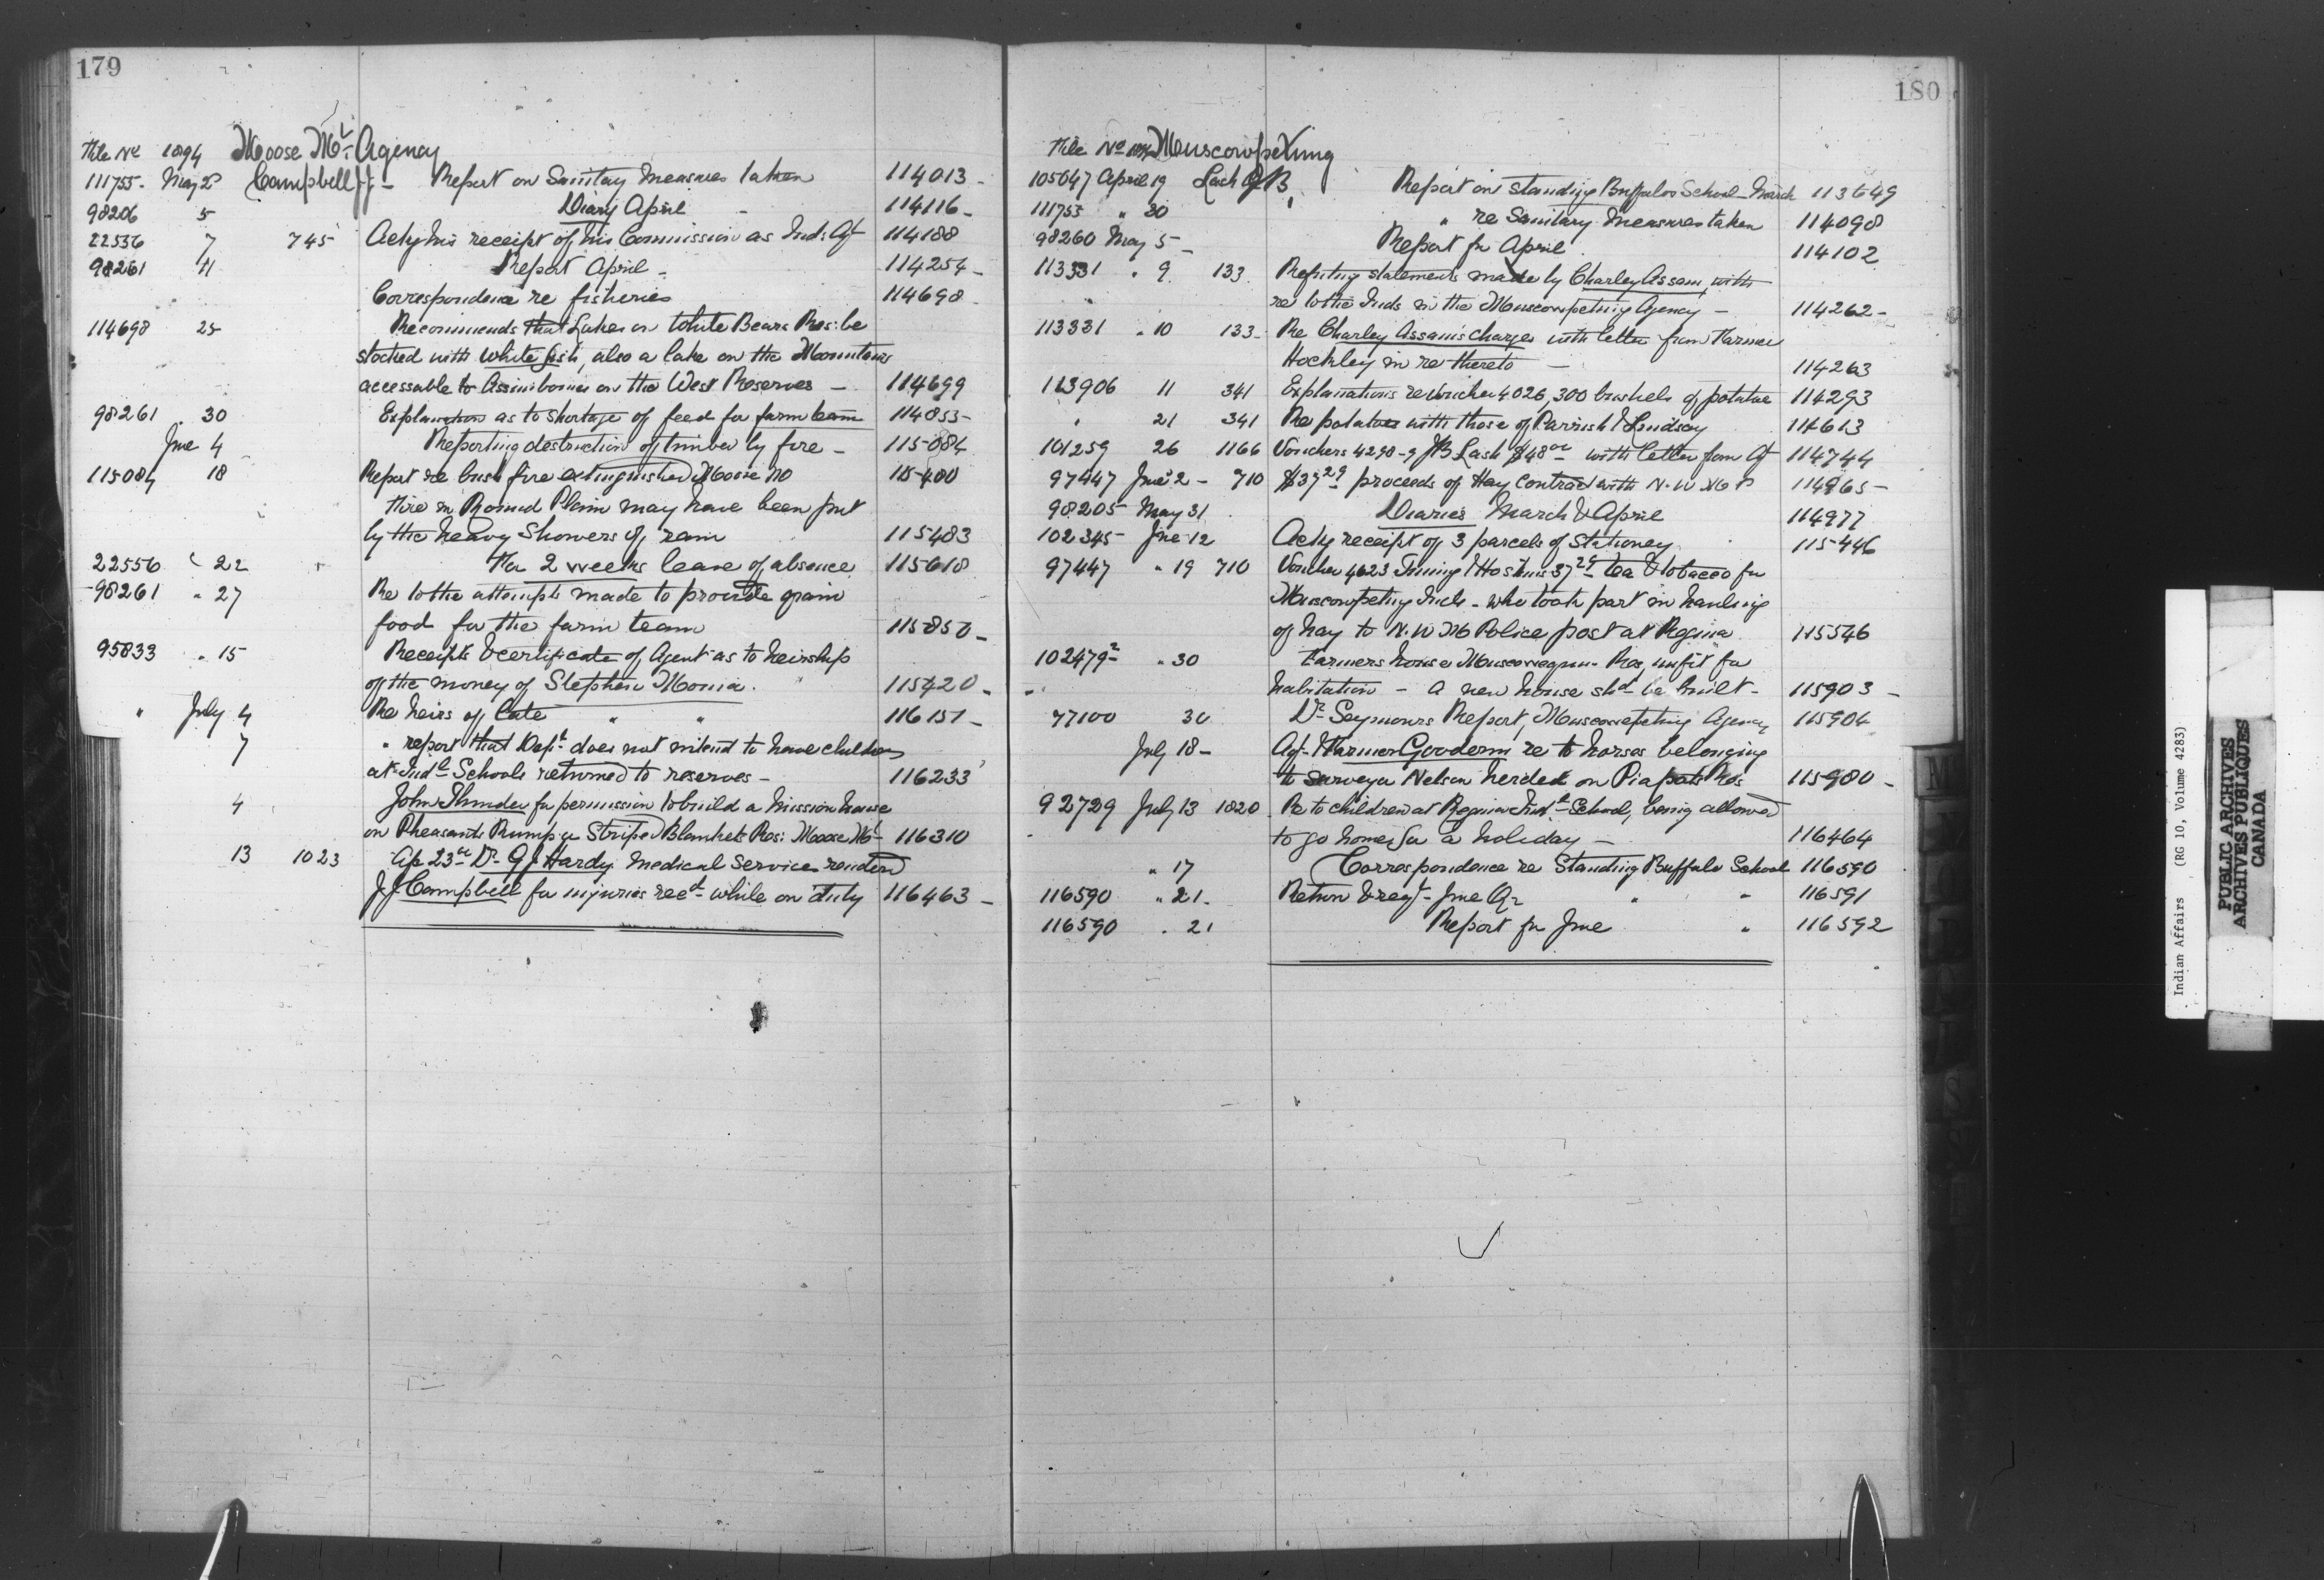 179
File No 1894 Moose Mt. Agency
111755 - May 2 Campbell J J - Report on Sanitary Measures taken 114013 -
98206 5 Diary April - 114116 -
22556 7 745 Ackg his receipt of his Commission as Ind: Agt 114188
98261 11 Report April - 114254 -
Correspondence re fisheries 114698
114698 25 Recommends that Lakes on White Bears Res: be
stocked with white fish, also a lake on the Mountains
accessable to Assiniboines on the West Reserves - 114699
98261 . 30 Explanation as to shortage of feed for farm team 114855 -
June 4 Reporting destruction of timber by fire - 115084
115084 18 Report re bush fire extinguished Moose Mt 115480
Fire in Round Plain may have been put
by the heavy showers of rain 115483
22556 " 22 For 2 weeks leave of absence 115618
98261 " 27 Re to the attempts made to provide grain
food for the farm team 115850 -
95833 " 15 Receipts & certificate of Agent as to heirship
of the money of Stephen 115420 -
" July 4 Re heirs of late " " 116151 -
7 " report that Dept does not intend to have children
at Indl Schools returned to reserves - 116233
4 John Thunder for permission to build a Mission house
on Pheasants Rump or Striped Blankets Res: Moose Mt - 116310
13 1023 A/c 23 00 Dr G J Hardy Medical Service rendered
J J Campbell for injuries recd while on duty 116463 -
180
File No 1894 Muscowpetung
105647 April 19 Lash J B, Report on Standing Buffalos School - March 113649
111755 " 30 " re Sanitary Measures taken 114098
98260 May 5 - Report for April 114102
113331 " 9 133 Refuting statements made by Charley Assam, with
re to the Inds in the Muscowpetung Agency - 114262 -
113331 " 10 133 - Re Charley Assam's Charges with letter from Farmer
Hockley in re thereto - 114263
113906 11 341 Explanations re Voucher 4026, 300 bushels of potatoe 114293
" 21 341 Re potatoes with those of Parrish & Lindsay 114613
101259 26 1166 Vouchers 4298-9 JB Lash $48 00 with letter from Agt 114744
97447 June 2 - 710 $37 29 proceeds of Hay Contract with N.W.M.P 114965 -
98205 May 31 Diaries March & April 114977
102345 - June 12 Ackg receipt of 3 parcels of Stationery 115446
97447 " 19 710 Voucher 4623 & Hoskins 37 29 tea & tobacco for
Muscowpetung Inds - who took part in hauling
of hay to N.W.M Police post at Regina 115546
102479 2 " 30 Farmers house Muscowequan Res, unfit for
habitation - a new house shd be built - 115903 -
77100 30 Dr Seymours Report, Muscowpetung Agency 115904
July 18 - Agt & Farmer Gooderm re to horses belonging
to surveyor Nelson herded on Piapots Res 115980 -
92729 July 13 1820 Re to children at Regina Indl School, being allowed
to go home for a holiday - 116464
" 17 Correspondence re Standing Buffalo School 116590
116590 " 21 - Return & reqt - June Qr " " 116591
116590 " 21 Report for June " 116592
Indian Affairs (RG 10, Volume 4283)
PUBLIC ARCHIVES
ARCHIVES PUBLIQUES
CANADA